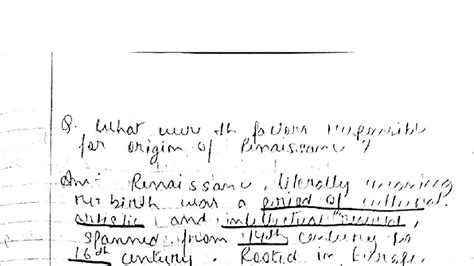 Q. What were th factors responsible
for origin of Renaissance ?
Ans- Renaissance, literally meaning
Re-birth was a period of cultural
artistic and intellectual revival,
spanned from 14th century to
16th century. Rooted in Europe,